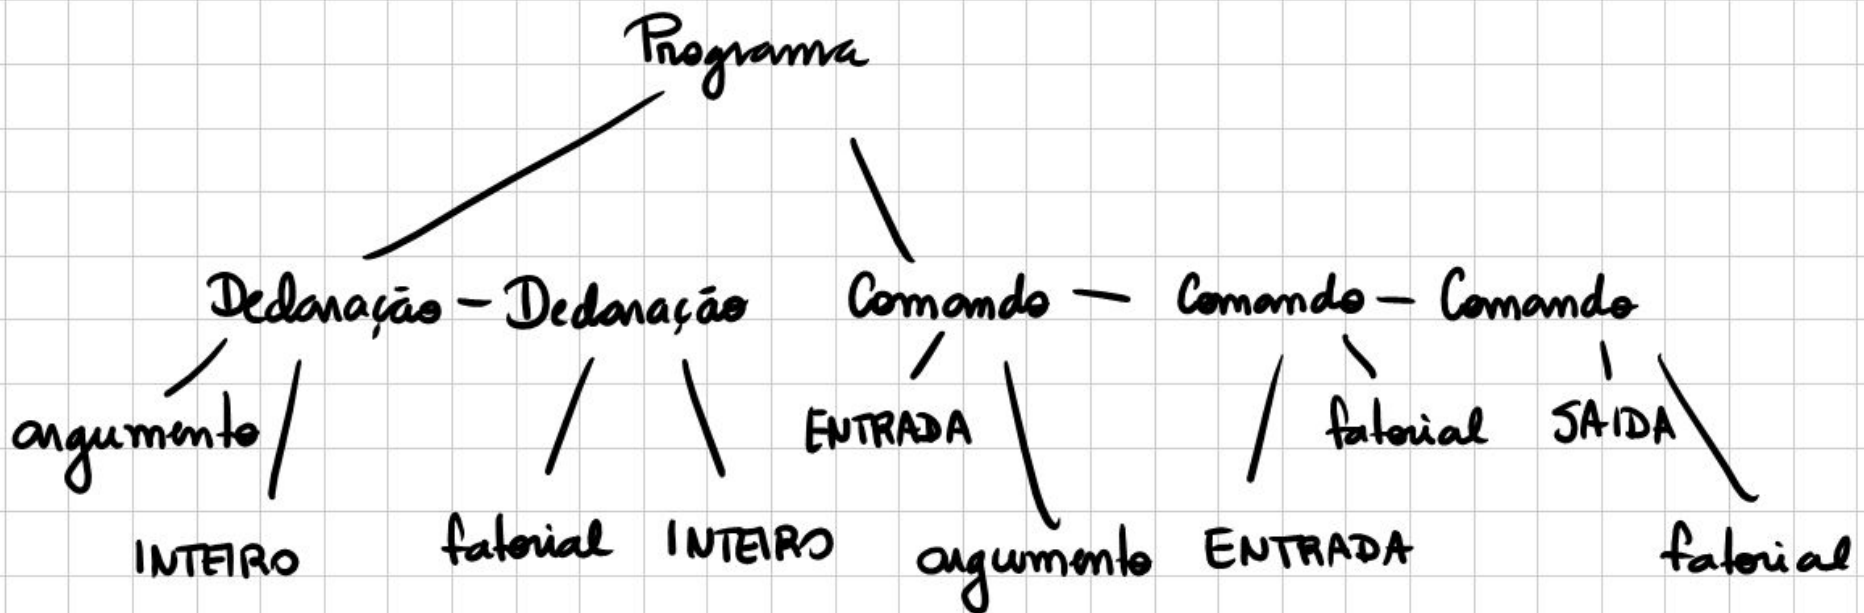 Programa
Declaração - Declaração Comando - Comando - Comando
argumento ENTRADA fatorial SAIDA
INTEIRO fatorial INTEIRO argumento ENTRADA fatorial